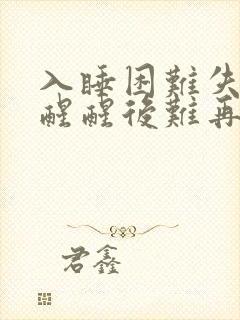 入睡困難失
醒醒後難再
君鑫